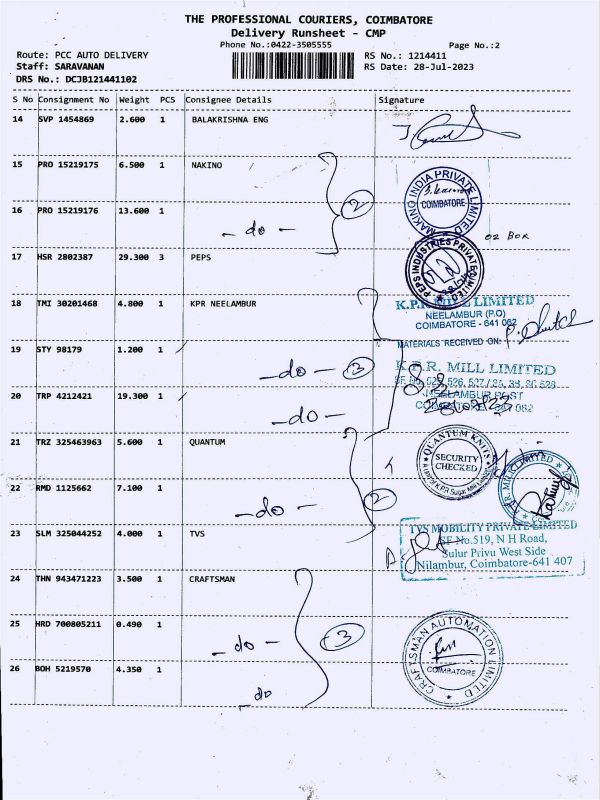 THE PROFESSIONAL COURIERS, COIMBATORE
Delivery Runsheet - CMP
Phone No.:0422-3505555
Page No.:2
Route: PCC AUTO DELIVERY
RS No.: 1214411
Staff: SARAVANAN
RS Date: 28-Jul-2023
DRS No.: DCJB121441102
S No Consignment No Weight PCS Consignee Details Signature
14 SVP 1454869 2.600 1 BALAKRISHNA ENG
15 PRO 15219175 6.500 1 NAKINO
MAKINO INDIA PRIVATE LIMITED
COIMBATORE
2
16 PRO 15219176 13.600 1
- do -
02 BOX
17 HSR 2802387 29.300 3 PEPS
PEPS INDUSTRIES PRIVATE LIMITED
18 TMI 30201468 4.800 1 KPR NEELAMBUR
K.P.R. MILL LIMITED
NEELAMBUR (P.O)
COIMBATORE - 641 062
MATERIALS RECEIVED ON:
19 STY 98179 1.200 1
- do - 3
K.P.R. MILL LIMITED
20 TRP 4212421 19.300 1
- do -
NEELAMBUR POST
21 TRZ 325463963 5.600 1 QUANTUM
QUANTUM KNITS
SECURITY
CHECKED
22 RMD 1125662 7.100 1
- do -
2
K.P.R. MILL LIMITED
23 SLM 325044252 4.000 1 TVS
TVS MOBILITY PRIVATE LIMITED
SF No.519, N H Road,
Sulur Privu West Side
Nilambur, Coimbatore-641 407
24 THN 943471223 3.500 1 CRAFTSMAN
25 HRD 700805211 0.490 1
- do -
3
CRAFTSMAN AUTOMATION LIMITED
COIMBATORE
26 BOH 5219570 4.350 1
do